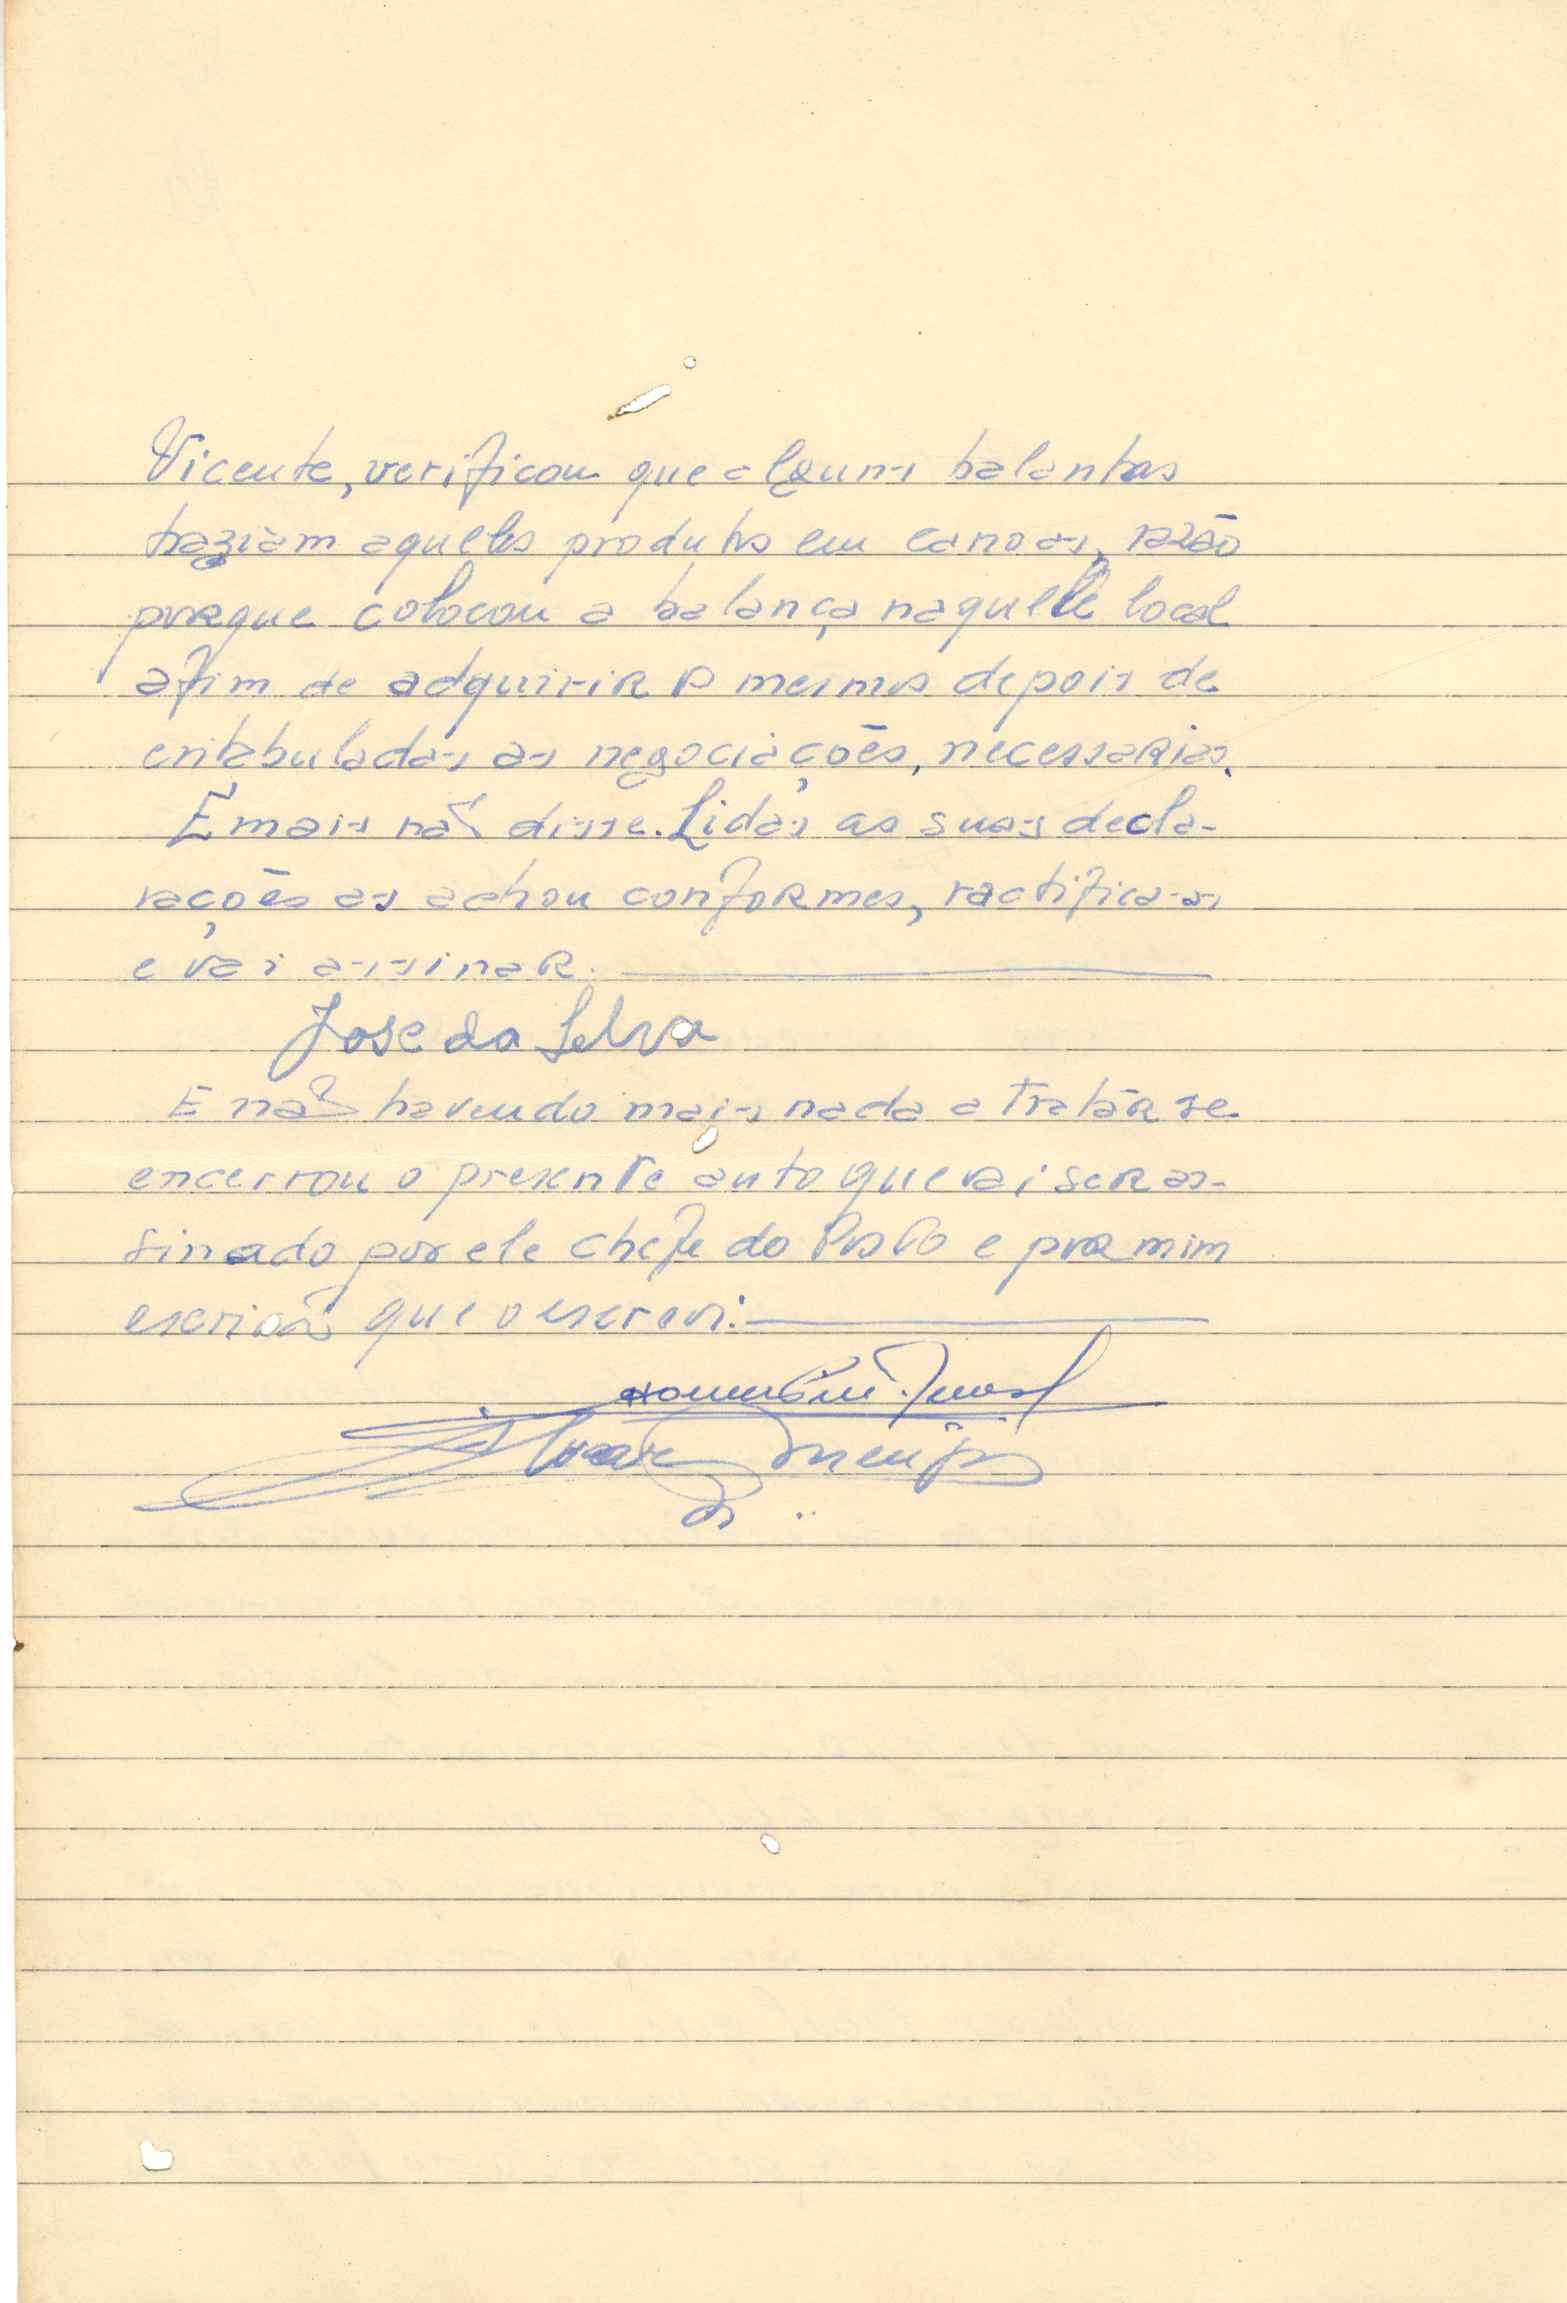 Vicente, verificou que alguns balantas
traziam aqueles produtos em canoas, razão
porque colocou a balança naquele local
afim de adquirir os mesmos depois de
entabuladas as negociações, necessarias.
E mais não disse. Lidas as suas decla-
rações as achou conformes, ractifica-as
e vai assinar.
Jose da Selva
E não havendo mais nada a tratár se
encerrou o presente auto que vai ser as-
sinado por ele chefe do Posto e por mim
escrivão que o escrevi: